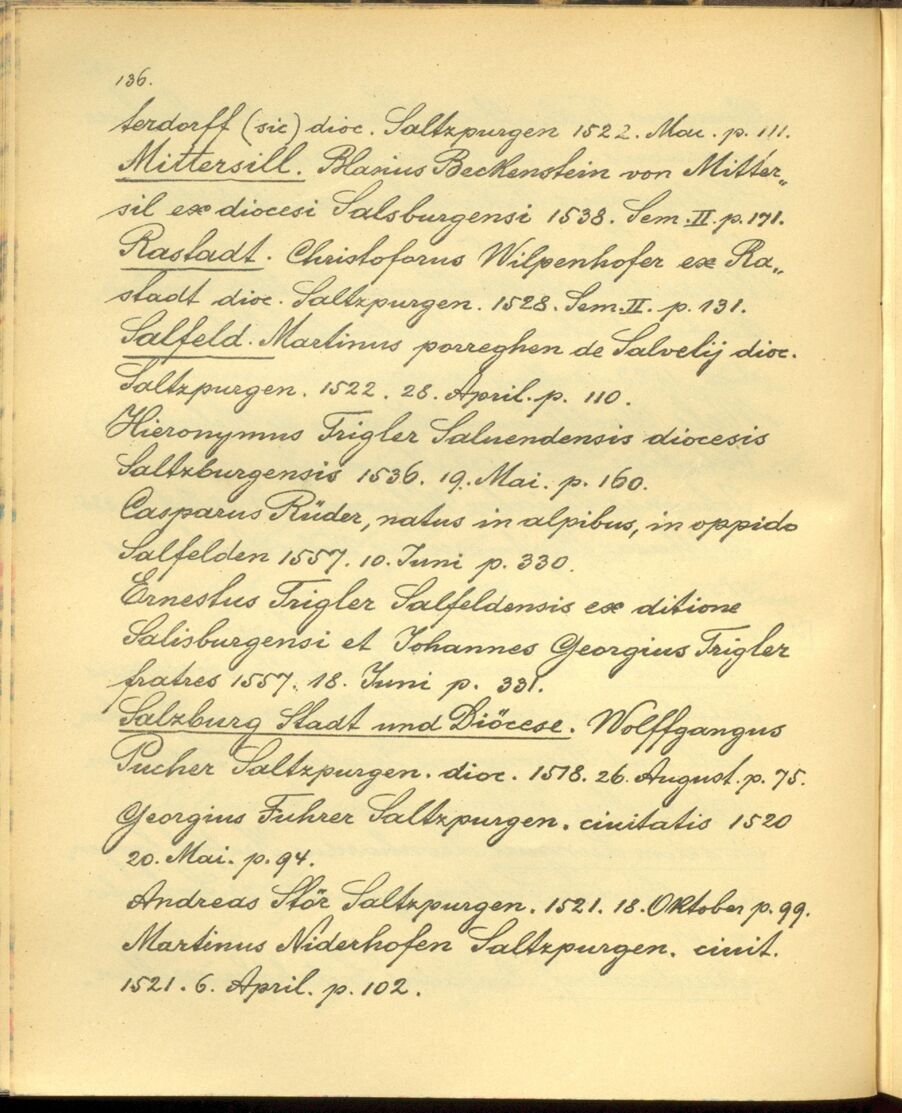 136.
terdorff (sic) dioc. Saltzpurgen 1522. Mai. p. 111.
Mittersill. Blasius Beckenstein von Mitter„
sil ex diocesi Salsburgensi 1538. Sem. II. p. 171.
Rastadt. Christoforus Wilpenhofer ex Ra„
stadt dioc. Saltzpurgen. 1528. Sem. II. p. 131.
Salfeld. Martinus porreghen de Salvelij dioc.
Saltzpurgen. 1522. 28. April. p. 110.
Hieronymus Trigler Saluendensis diocesis
Saltzburgensis 1536. 19. Mai. p. 160.
Casparus Rüder, natus in alpibus, in oppido
Salfelden 1557. 10. Juni p. 330.
Ernestus Trigler Salfeldensis ex ditione
Salisburgensi et Johannes Georgius Trigler
fratres 1557. 18. Juni p. 331.
Salzburg Stadt und Diöcese. Wolffgangus
Pucher Saltzpurgen. dioc. 1518. 26. August. p. 75.
Georgius Fuhrer Saltzpurgen. ciuitatis 1520
20. Mai. p. 94.
Andreas Stör Saltzpurgen. 1521. 18. Oktober p. 99.
Martinus Niderhofen Saltzpurgen. ciuit.
1521. 6. April. p. 102.